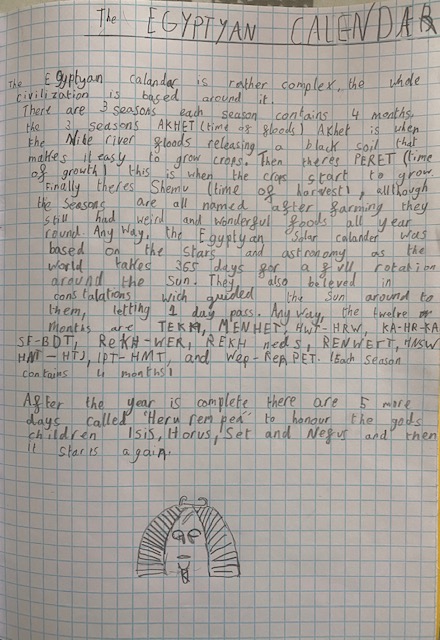 The EGYPTYAN CALENDAR
The Egyptyan calandar is rather complex, the whole
civilization is based around it.
There are 3 seasons each season contains 4 months,
the 3 seasons AKHET (time of floods) AKhet is when
the Nike river floods releasing a black soil that
makes it easy to grow crops. Then theres PERET (time
of growth) this is when the crops start to grow.
Finally theres Shemu (time of harvest), allthough
the seasons are all named after farming they
still had weird and wonderful foods all year
round. Any way, the Egyptyan Solar calander was
based on the stars and astronomy as the
world takes 365 days for a full rotation
around the Sun. They also beleved in
constalations wich guided the Sun around to
them, letting 1 day pass. Any way, the twelve
months are TEKH, MENHET, HWT-HRW, KA-HR-KA
SF-BDT, ReKH-WER, REKH neds, RENWERT, HNSW
HNT-HTJ, IPT-HMT, and Wep-RenPET. (Each season
contains 4 months)
After the year is complete there are 5 more
days called "Heru rempea" to honour the gods
children Isis, Horus, Set and Nefus and then
it starts again.